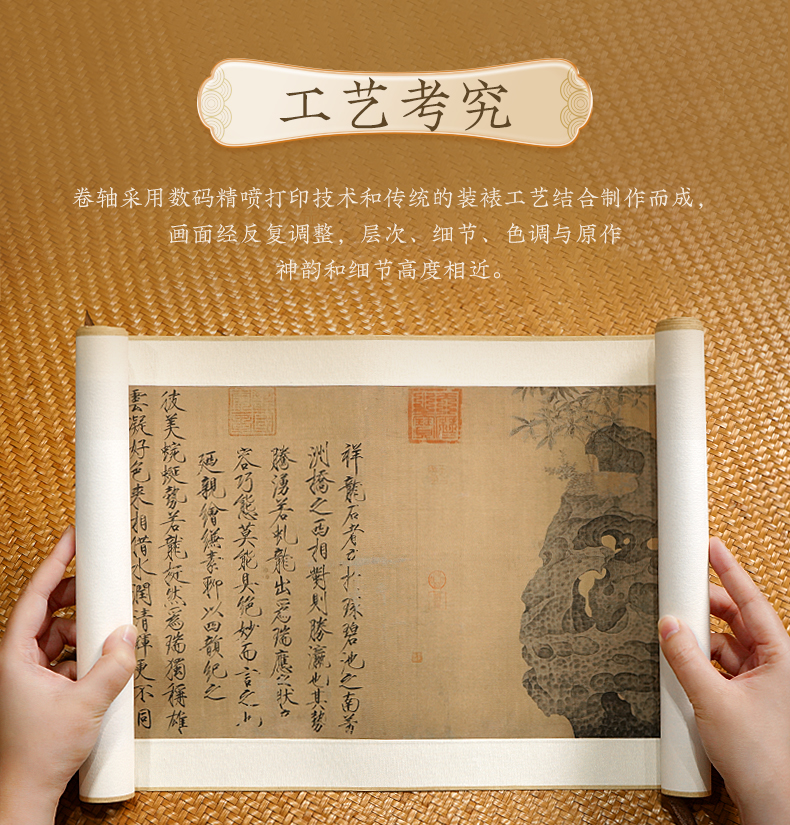 工艺考究
卷轴采用数码精喷打印技术和传统的装裱工艺结合制作而成，
画面经反复调整，层次、细节、色调与原作
神韵和细节高度相近。
祥龍石者立於環碧池之南芳
洲橋之西相對則勝瀛也其勢
騰湧若虬龍出為瑞應之狀奇
容巧態莫能具絕妙而言之也
廼親繪縑素聊以四韻紀之
彼美蜿蜒勢若龍挺然為瑞獨稱雄
雲凝好色來相借水潤清輝更不同